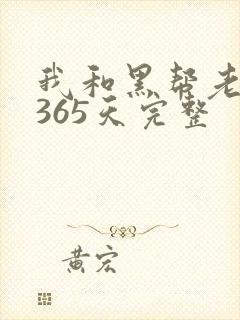 我和黑帮老
365天完整
黄宏